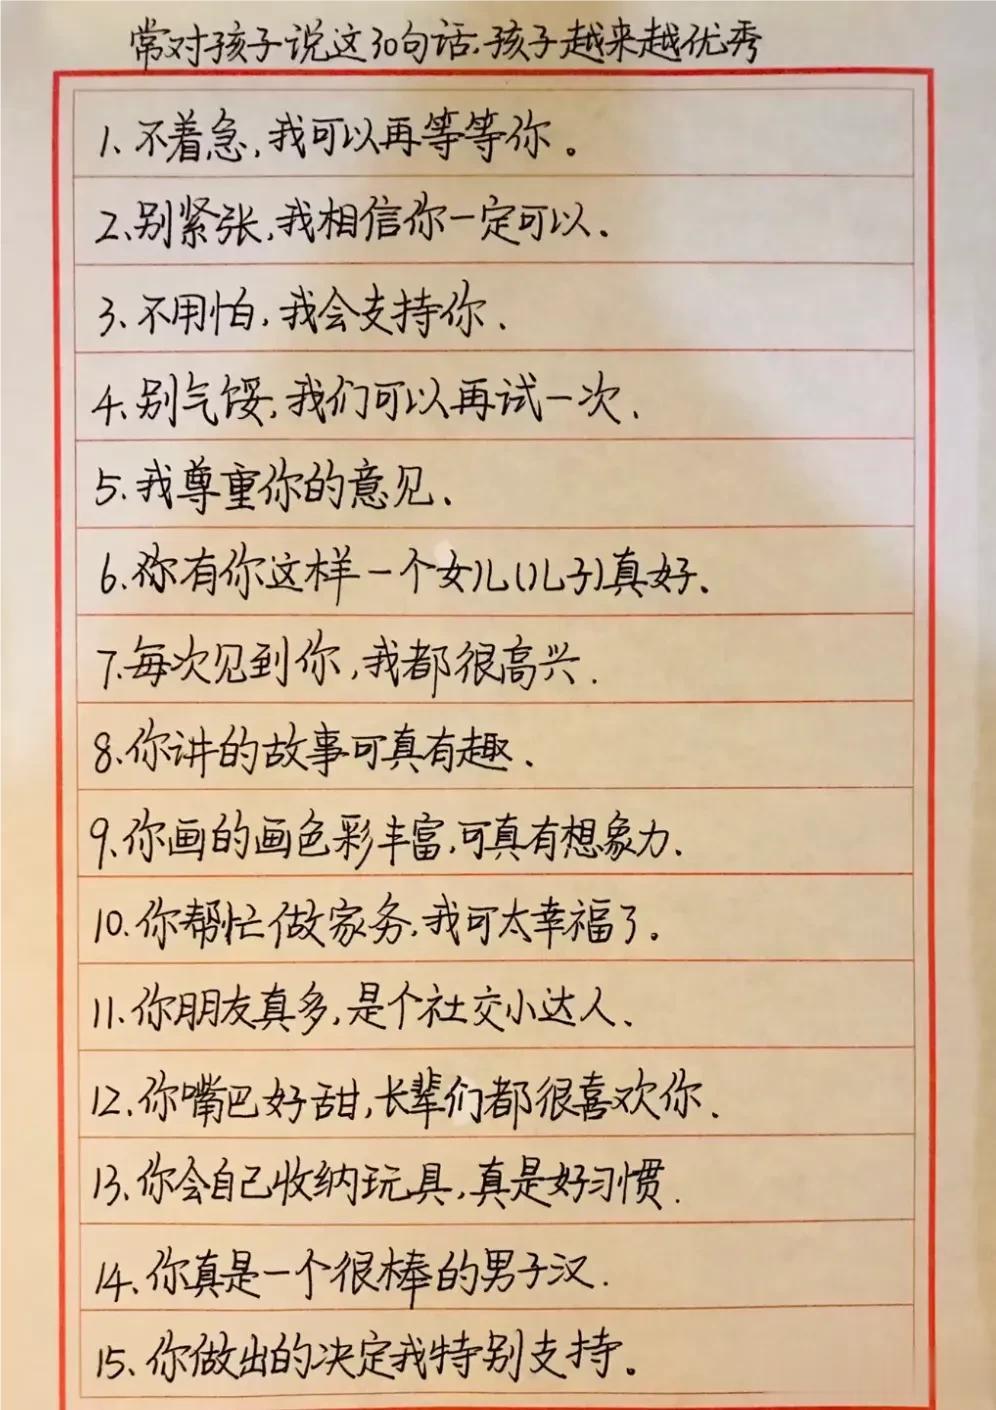 常对孩子说这30句话.孩子越来越优秀
1、不着急,我可以再等等你。
2、别紧张,我相信你一定可以、
3、不用怕,我会支持你、
4、别气馁,我们可以再试一次、
5、我尊重你的意见、
6、你有你这样一个女儿(儿子)真好、
7、每次见到你,我都很高兴.
8、你讲的故事可真有趣、
9、你画的画色彩丰富,可真有想象力、
10、你帮忙做家务,我可太幸福了。
11、你朋友真多,是个社交小达人、
12、你嘴巴好甜,长辈们都很喜欢你、
13、你会自己收纳玩具,真是好习惯.
14、你真是一个很棒的男子汉.
15、你做出的决定我特别支持。